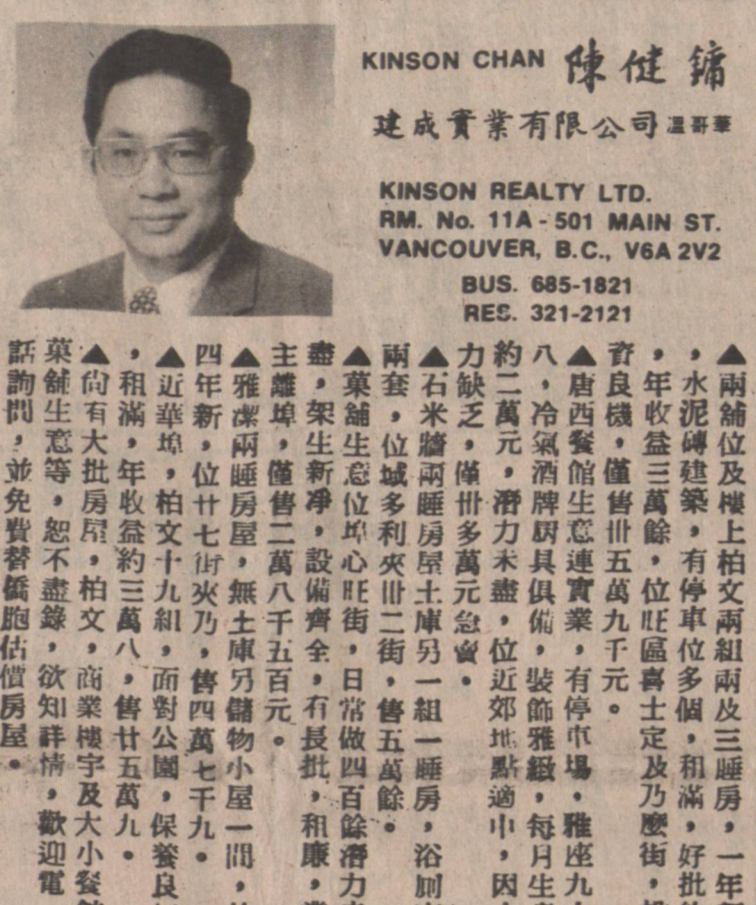 KINSON CHAN 陳健鏞
建成實業有限公司 溫哥華
KINSON REALTY LTD.
RM. No. 11A - 501 MAIN ST.
VANCOUVER, B.C., V6A 2V2
BUS. 685-1821
RES. 321-2121
▲兩舖位及樓上柏文兩組兩及三睡房，一年
，水泥磚建築，有停車位多個，租滿，好批
，年收益三萬餘，位旺區喜士定及乃麽街，
資良機，僅售卅五萬九千元。
▲唐西餐館生意連實業，有停市場，雅座九
八，冷氣酒牌厨具俱備，裝飾雅緻，每月生
約二萬元，潛力未盡，位近郊地點適中，因
力缺乏，僅卅多萬元急賣。
▲石米牆兩睡房屋土庫另一組一睡房，浴厠
兩套，位域多利夾卌二街，售五萬餘。
▲菓舖生意位埠心旺街，日常做四百餘潛力
盡，架生新净，設備齊全，有長批，租廉，
主離埠，僅售二萬八千五百元。
▲雅潔兩睡房屋，無土庫另儲物小屋一間，
四年新，位廿七街夾乃，售四萬七千九。
▲近華埠，柏文十九組，面對公園，保養良
，租滿，年收益約三萬八，售廿五萬九。
▲尙有大批房屋，柏文，商業樓宇及大小餐
菓舖生意等，恕不盡錄，欲知詳情，歡迎電
話詢問，並免費替僑胞估價房屋。